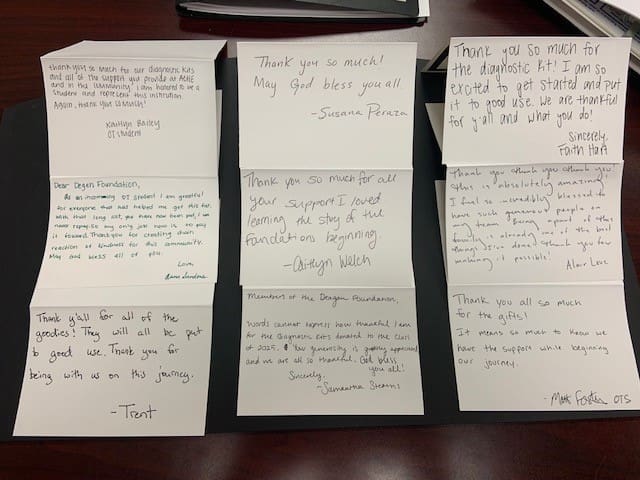 thank you so much for our diagnostic kits
and all of the support you provide at ACHE
and in the community! I am honored to be a
student and represent this institution.
Again, thank you so much!
Kaitlyn Bailey
OT Student
Dear Degen Foundation,
As an incoming OT student I am grateful
for everyone that has helped me get this far.
With that long list, you have now been put, I can
never repay. So my only job now is to pay
it forward. Thank you for creating chain
reaction of kindness for this community.
May God bless all of you.
Love,
Thank y'all for all of the
goodies! They will all be put
to good use. Thank you for
being with us on this journey.
-Trent
Thank you so much!
May God bless you all
-Susana Peraza
Thank you so much for all
your support I loved
learning the story of the
foundations beginning
-Caitlyn Welch
Members of the Deagen Foundation,
Words cannot express how thankful I am
for the diagnosis kits donated to the Class
of 2025. Your generosity is greatly appreciated
and we are all so thankful. God bless
you all!
Sincerely,
-Samantha Stearns
Thank you so much for
the diagnostic kit! I am so
excited to get started and put
it to good use. We are thankful
for y'all and what you do!
Sincerely,
Faith Hart
Thank you thank you thank you!
this is absolutely amazing!
I feel so incredibly blessed to
have such generous people on
my team. Being apart of this
family is already one of the best
things I've done! Thank you for
making it possible!
Alair Love
Thank you all so much
for the gifts!
It means so much to know we
have the support while beginning
our journey.
-Matt OTS